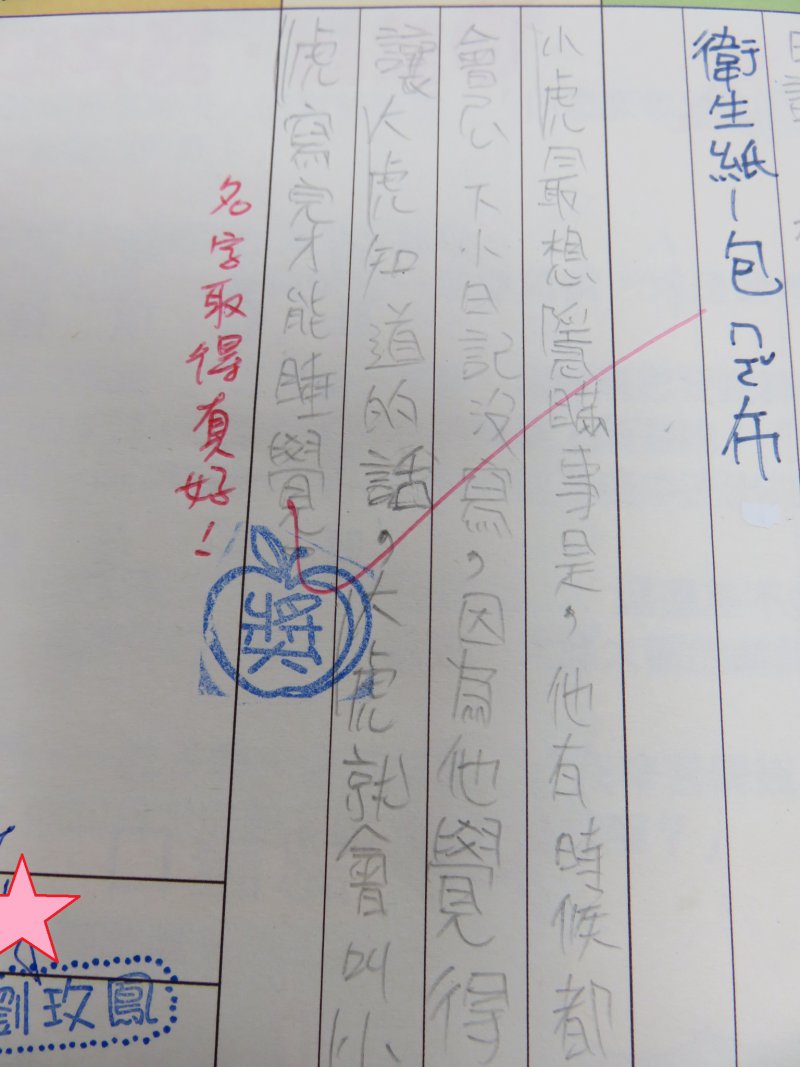 衛生紙一包 口罩 抹布
小虎最想隱瞞事是，他有時候都
會忘 下小日記沒寫，因為他覺得
讓大虎知道的話，大虎就會叫小
虎寫完才能睡覺
名字取得真好！
劉玫鳳